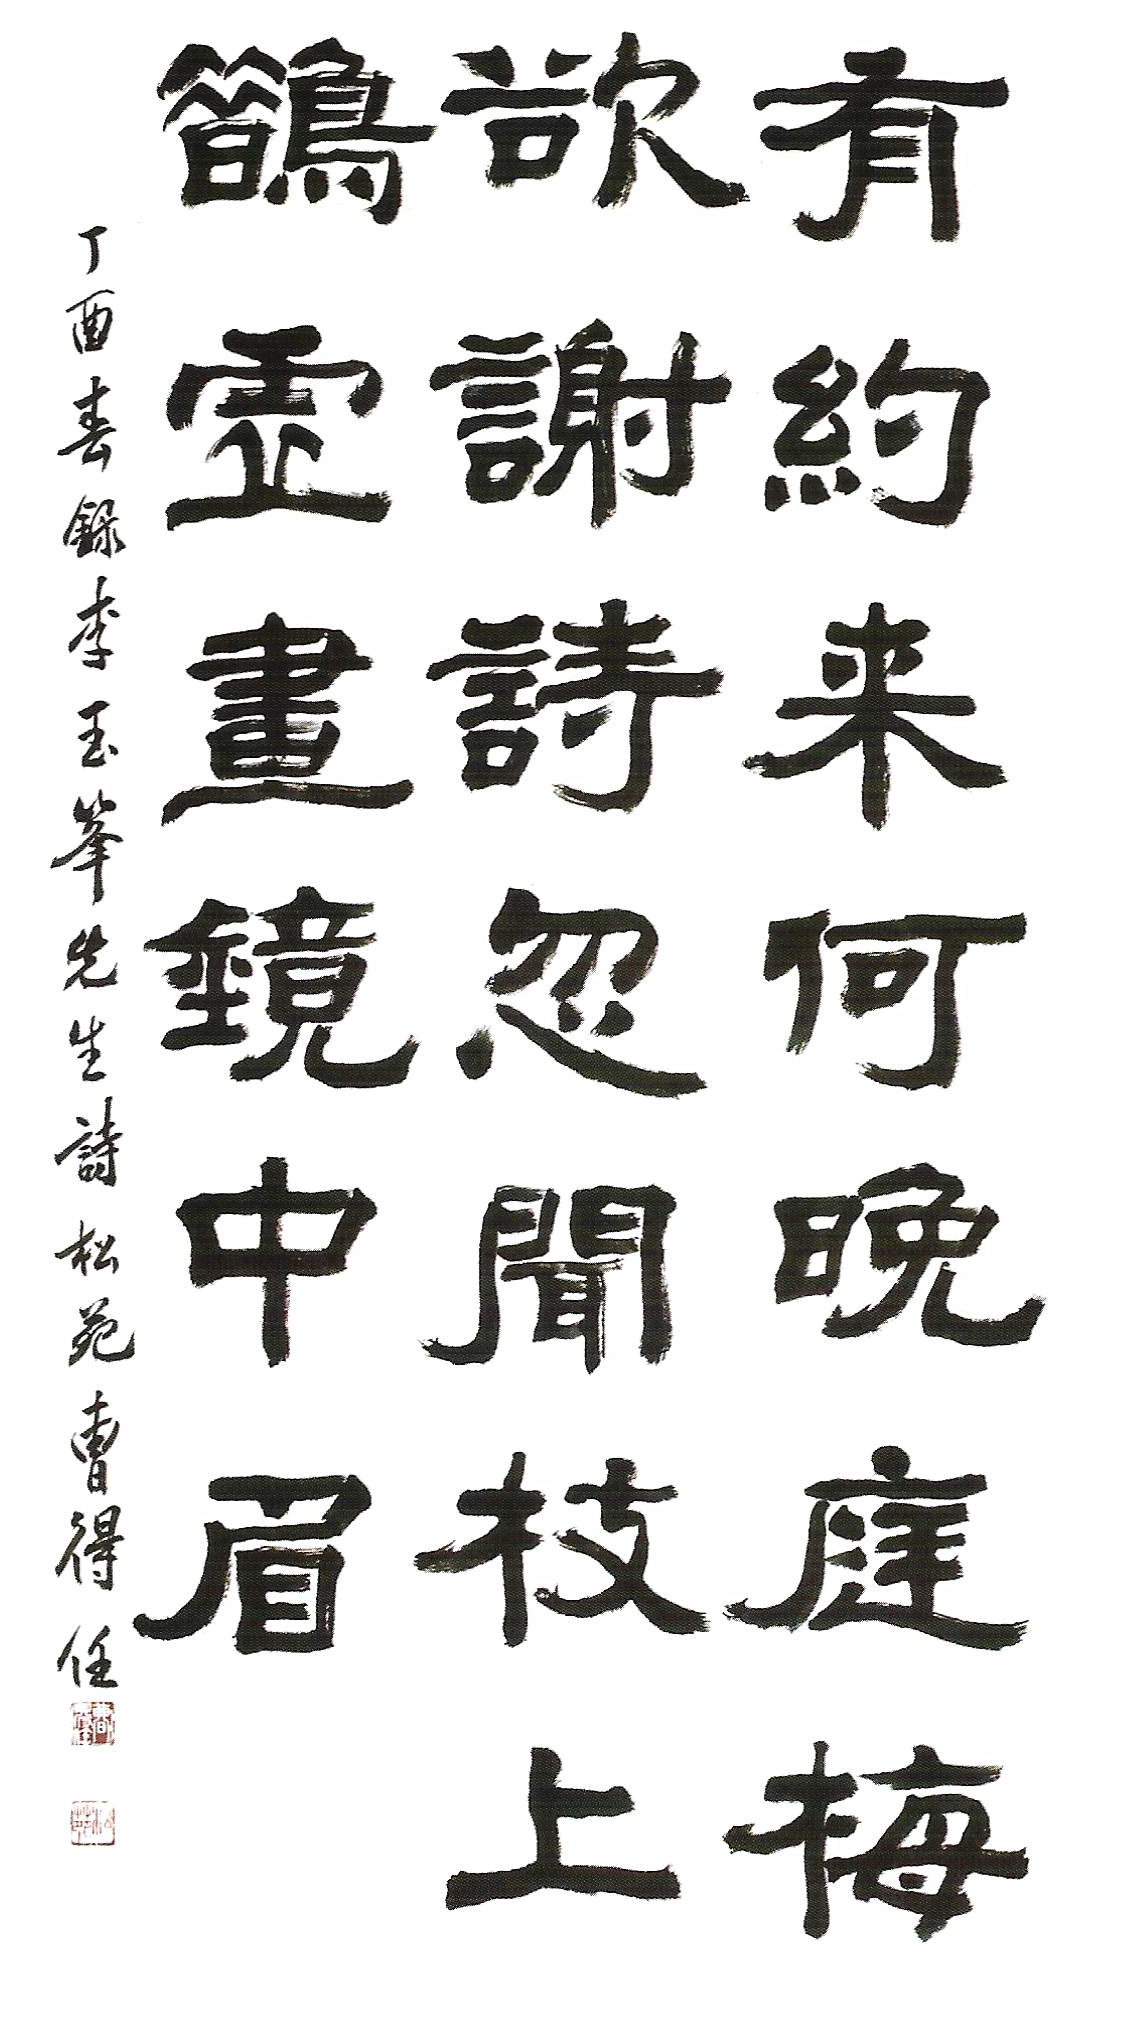 有約来何晚庭梅
欲謝詩忽聞枝上
鵲虛畫鏡中眉
丁酉春錄李玉峯先生詩 松苑 曹得任